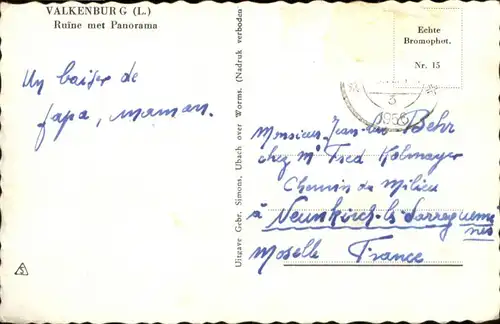 VALKENBURG (L.)
Ruïne met Panorama
Un baiser de
papa, maman.
Uitgave Gebr. Simons, Ubach over Worms. (Nadruk verboden
Echte
Bromophot.
Nr. 15
3
1956
Monsieur Jean-luc Behr
chez Mr Fred Kolmayer
Chemin du Milieu
à Neunkirch-ls-Sarreguemi
nes
Moselle France